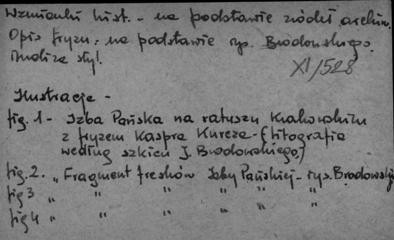 Wzmianki hist. - na podstawie źródeł archiw.
Opis fryzu. na podstawie rys. Brodowskiego.
Analiza styl.
XI/528
Ilustracje -
fig. 1 - Izba Pańska na ratuszu Krakowskim
z fryzem Kaspra Kurcza - (litografia
według szkicu J. Brodowskiego)
fig. 2. „Fragment fresków Izby Pańskiej - rys. Brodowski
fig 3 „ " " " " "
fig 4 „ " " " "